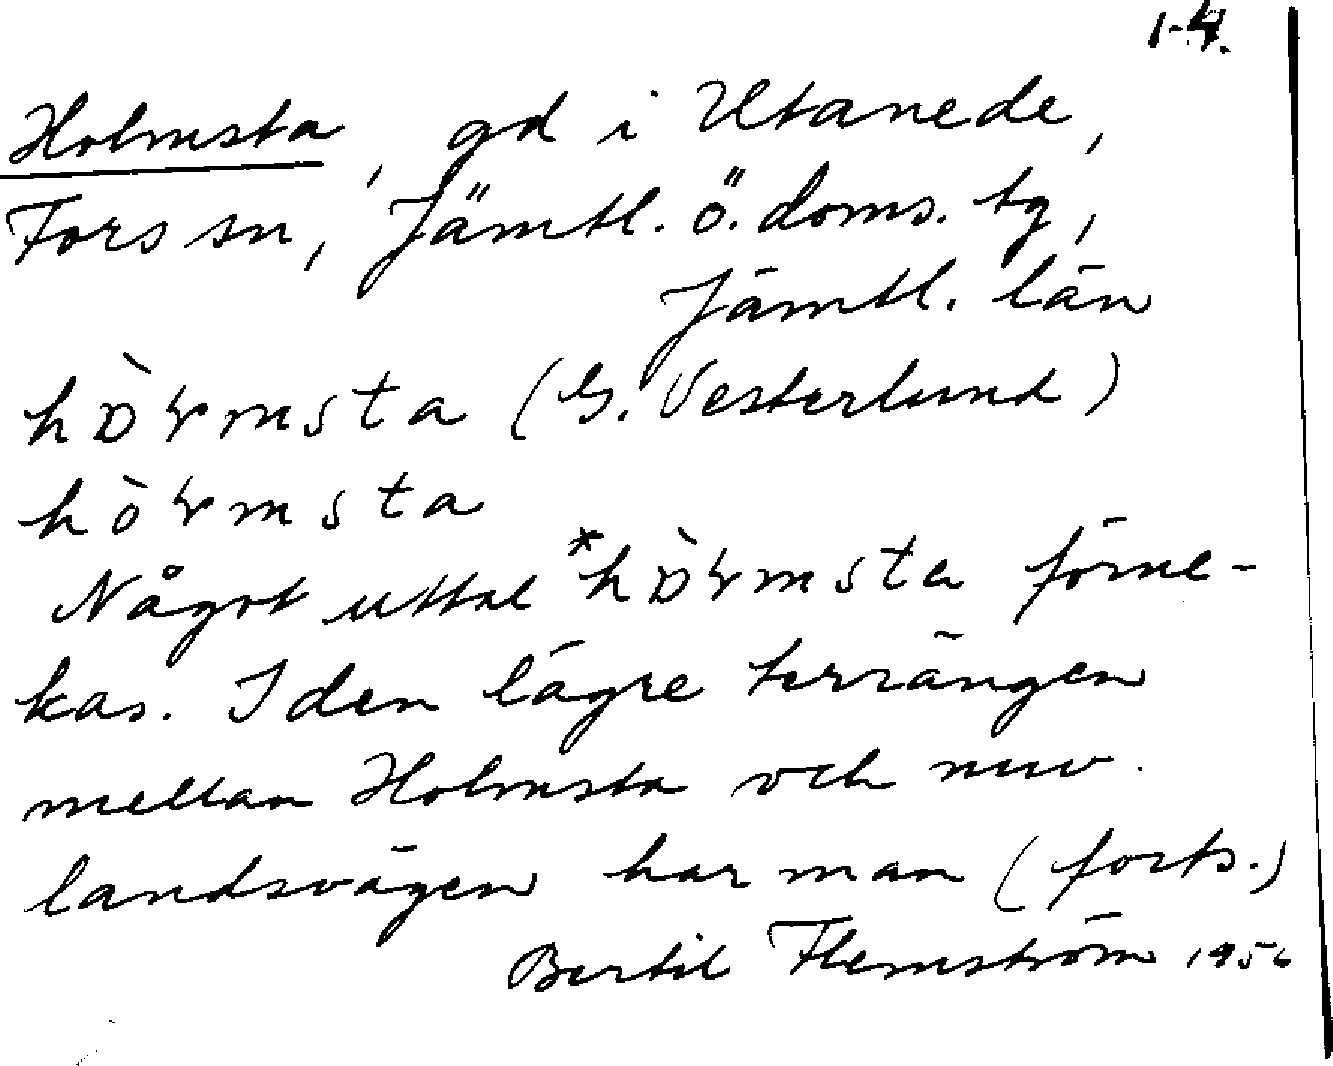 1-4.
Holmsta, gd i Utanede,
Fors sn, Jämtl. ö. doms. tg,
Jämtl. län
hòrmsta (G. Vesterlund)
hòrmsta
Något uttal *hòrmsta förne-
kas. I den lägre terrängen
mellan Holmsta och nuv.
landsvägen har man (forts.)
Bertil Flemström 1956